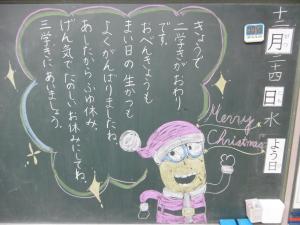 十二
月
二十四
日
水
よう日
きょうで
二学きがおわり
です。
おべんきょうも
まい日の生かつも
よくがんばりましたね。
あしたからふゆ休み。
げん気でたのしいお休みにしてね。
三学きにあいましょう。
Merry
Christmas